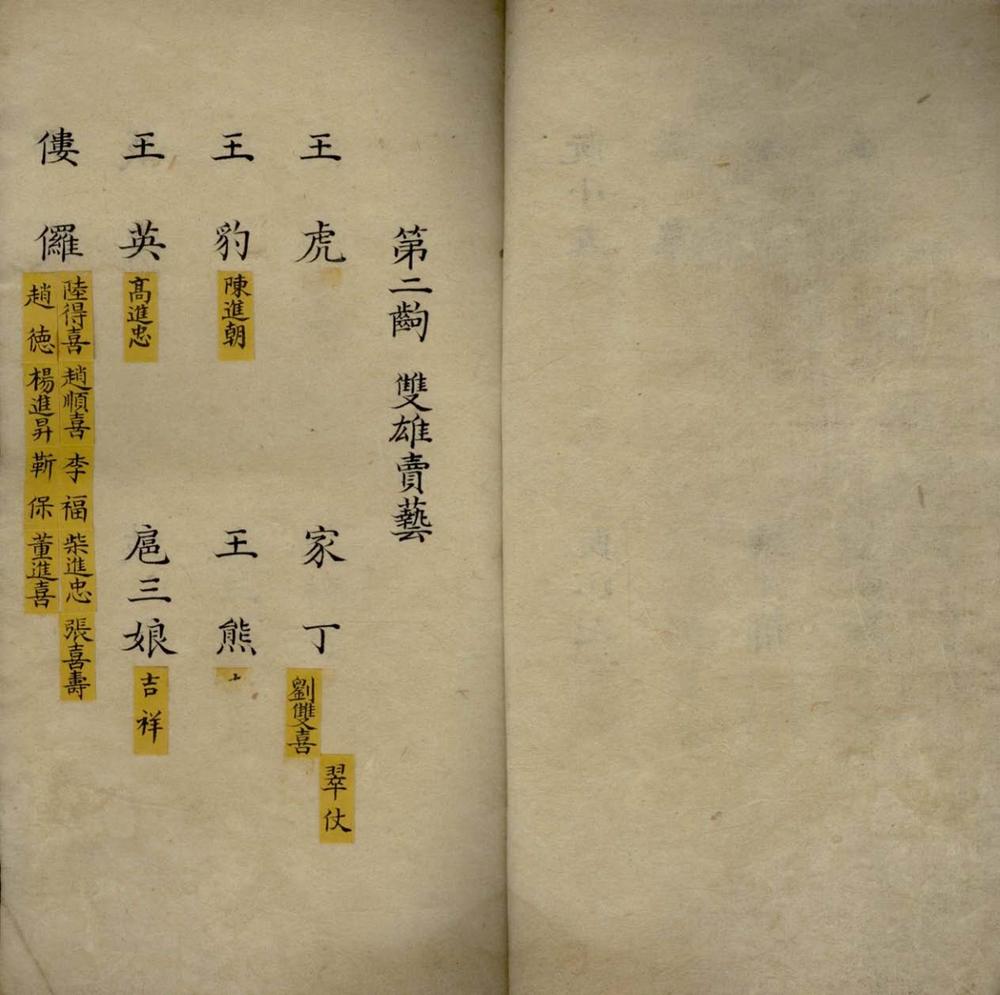 第二齣 雙雄賣藝
王虎 家丁 劉雙喜 翠仗
王豹 陳進朝 王熊
王英 高進忠 扈三娘 吉祥
僂儸 陸得喜 趙順喜 李福 柴進忠 張喜壽
趙德 楊進昇 靳保 董進喜